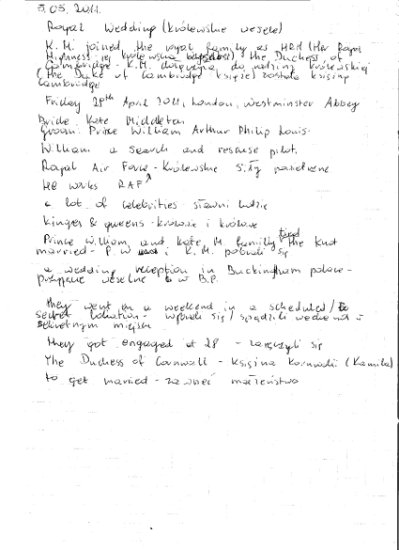 5.05.2011.
Royal Wedding (królewskie wesele)
K.M. joined the royal family as HRH (Her Royal
Highness jej królewska the Duchess of
Cambridge - K.M. dołączyła do rodziny królewskiej
(the Duke of Cambridge książę) została księżną
Cambridge
Friday 29th April 2011, London, Westminster Abbey
Bride: Kate Middleton
Groom: Prince William Arthur Philip Louis.
William a search and rescue pilot.
Royal Air Force - Królewskie Siły powietrzne
He works RAF
a lot of celebrities - sławni ludzie
Kinges & queens - królowie i królowe
Prince William and Kate M. family tied the knot
married - P.W. i K.M. pobrali się
a wedding reception in Buckingham palace -
przyjęcie weselne w B.P.
they went on a weekend in a scheduled/
secret lokation - się/spędzili weekend w
sekretnym miejscu
they got engaged at 28 - zaręczyli się
The Duchess of Cornwall - księżna Kornwalii (Kamila)
to get married - zawrzeć małżeństwo